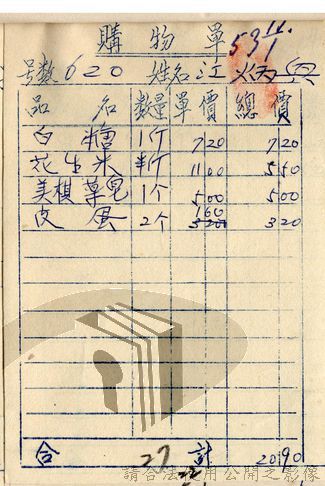 購物單 53 11/1
号数620 姓名江炳興
品名 数量 單價 總價
白糖 1斤 720 720
花生米 半斤 1100 550
美棋葉皂 1个 500 500
皮蛋 2个 160 320
合計 2090
請合法使用公開之影像